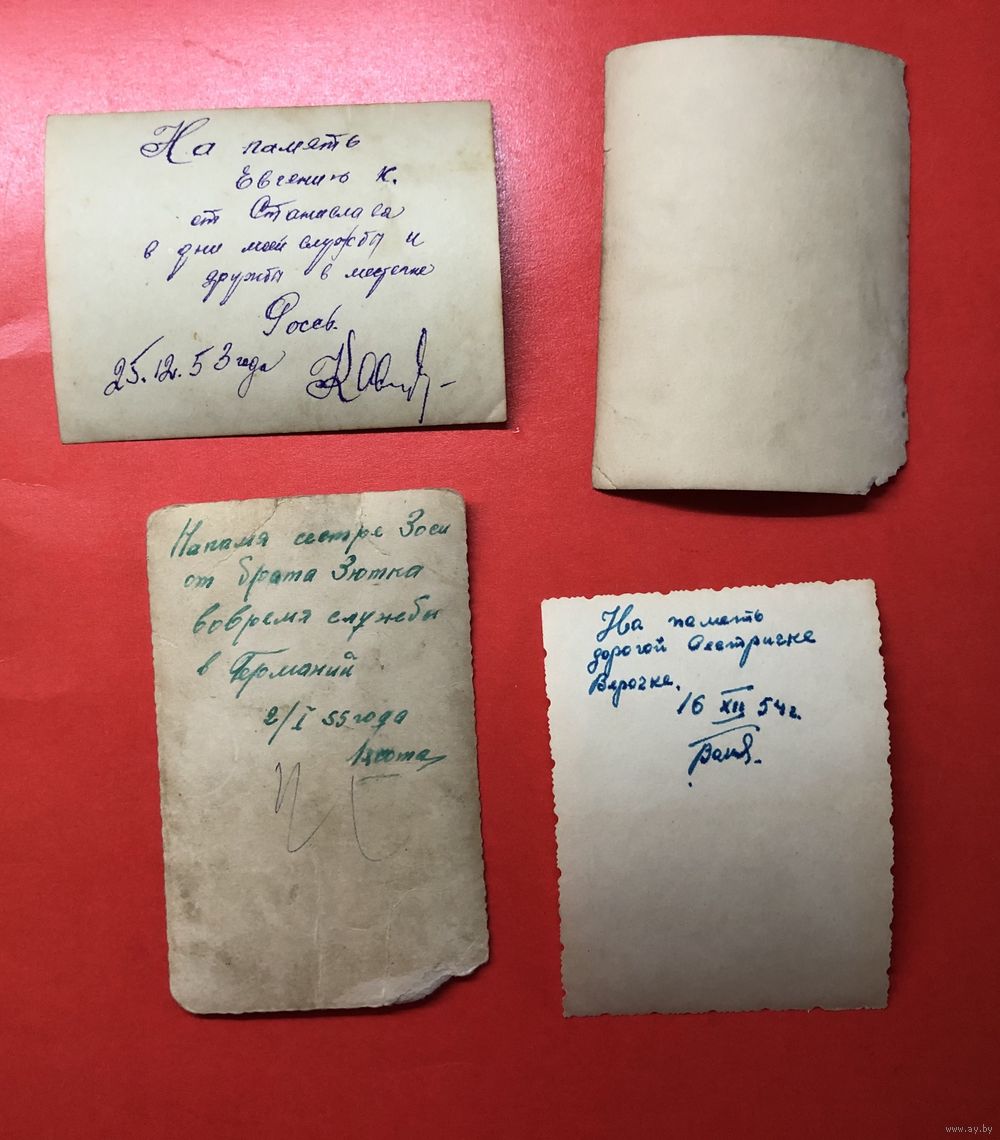 На память
Евгению К.
от Станислава
в дни моей службы и
дружбы в местечке
Россь.
25.12.53 года
Напамя сестре Зоси
от брата Зютка
вовремя службы
в Германий
2/I 55 года
На память
дорогой Сестричке
Верочке.
16 XII 54 г.
Ваня.
www.ay.by